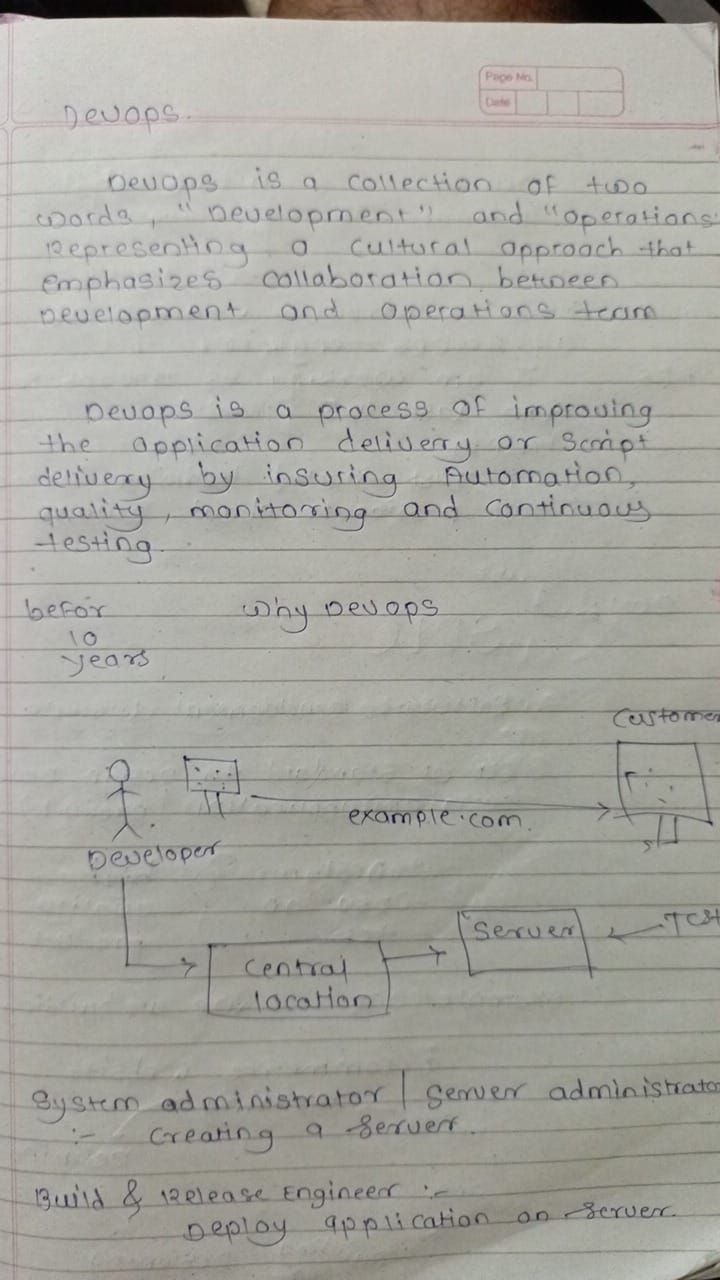 Page No.
Date
Devops.
Devops is a collection of two
words, "Development" and "operations"
Representing a cultural approach that
emphasizes collaboration between
Development and operations team
Devops is a process of improving
the application delivery or Script
delivery by insuring Automation,
quality, monitoring and continuous
testing.
befor
10
years
Why Devops
Customer
example.com.
Developer
Server
central
location
System administrator | Server administrator
:- creating a server.
Build & Release Engineer :-
Deploy application on server.